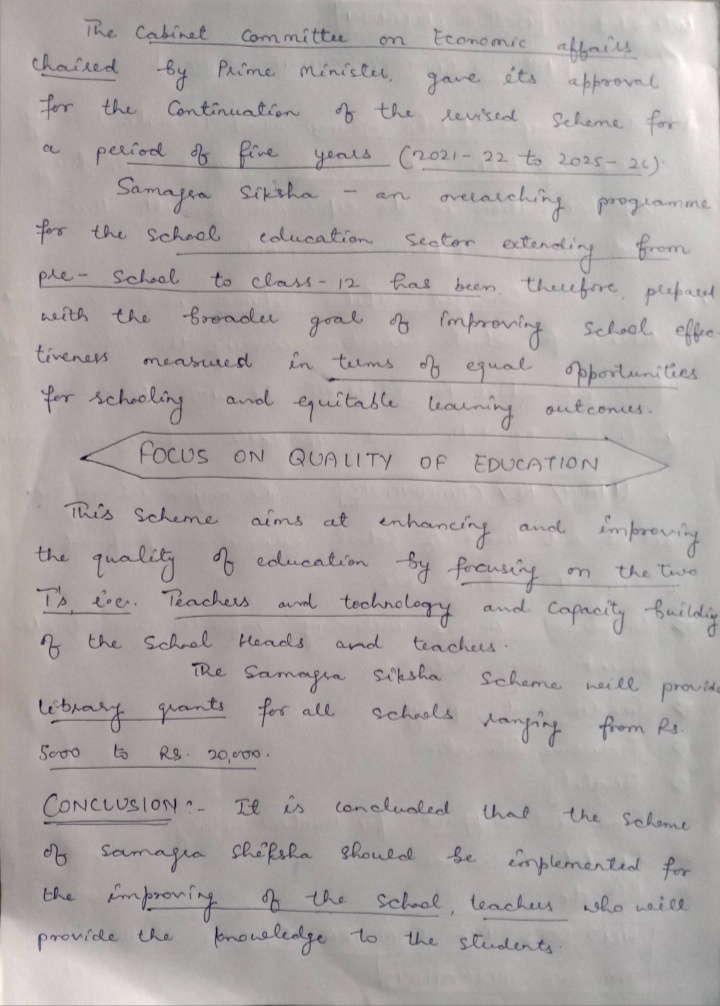 The Cabinet Committee on Economic affairs
chaired by Prime Minister, gave its approval
for the Continuation of the revised Scheme for
a period of five years (2021-22 to 2025-26).
Samagra Siksha - an overarching programme
for the school education sector extending from
pre-school to class-12 has been, therefore, prepared
with the broader goal of improving school effec
tiveness measured in terms of equal opportunities
for schooling and equitable learning outcomes.
FOCUS ON QUALITY OF EDUCATION
This Scheme aims at enhancing and improving
the quality of education by focusing on the two
T's, i.e. Teachers and technology and capacity building
of the School Heads and teachers.
The Samagra Siksha Scheme will provide
library grants for all schools ranging from Rs.
5000 to RS. 20,000.
CONCLUSION :- It is concluded that the scheme
of samagra sheksha should be implemented for
the improving of the school, teachers who will
provide the knowledge to the students.